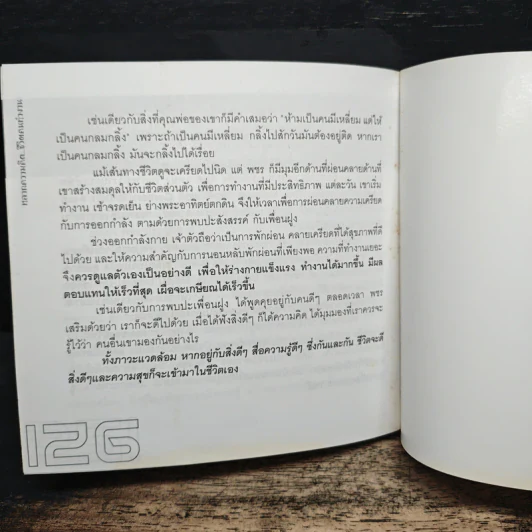 เช่นเดียวกับสิ่งที่คุณพ่อของเขาก็มีคำเสมอว่า "ห้ามเป็นคนมีเหลี่ยม แต่ให้
เป็นคนกลมกลิ้ง" เพราะถ้าเป็นคนมีเหลี่ยม กลิ้งไปสักวันมันต้องอยู่ติด หากเรา
เป็นคนกลมกลิ้ง มันจะกลิ้งไปได้เรื่อย
แม้เส้นทางชีวิตดูจะเครียดไปนิด แต่ พชร ก็มีมุมอีกด้านที่ผ่อนคลายด้านที่
เขาสร้างสมดุลให้กับชีวิตส่วนตัว เพื่อการทำงานที่มีประสิทธิภาพ แต่ละวัน เขาเริ่ม
ทำงาน เช้าจรดเย็น ย่างพระอาทิตย์ตกดิน จึงให้เวลาเพื่อการผ่อนคลายความเครียด
กับการออกกำลัง ตามด้วยการพบปะสังสรรค์ กับเพื่อนฝูง
ช่วงออกกำลังกาย เจ้าตัวถือว่าเป็นการพักผ่อน คลายเครียดที่ได้สุขภาพที่ดี
ไปด้วย และให้ความสำคัญกับการนอนหลับพักผ่อนที่เพียงพอ ความที่ทำงานเยอะ
จึงควรดูแลตัวเองเป็นอย่างดี เพื่อให้ร่างกายแข็งแรง ทำงานได้มากขึ้น มีผล
ตอบแทนให้เร็วที่สุด เผื่อจะเกษียณได้เร็วขึ้น
เช่นเดียวกับการพบปะเพื่อนฝูง ได้พูดคุยอยู่กับคนดีๆ ตลอดเวลา พชร
เสริมด้วยว่า เราก็จะดีไปด้วย เมื่อได้ฟังสิ่งดีๆ ก็ได้ความคิด ได้มุมมองที่เราควรจะ
รู้ไว้ว่า คนอื่นเขามองกันอย่างไร
ทั้งภาวะแวดล้อม หากอยู่กับสิ่งดีๆ สื่อความรู้ดีๆ ซึ่งกันและกัน ชีวิตจะดี
สิ่งดีๆและความสุขก็จะเข้ามาในชีวิตเอง
126